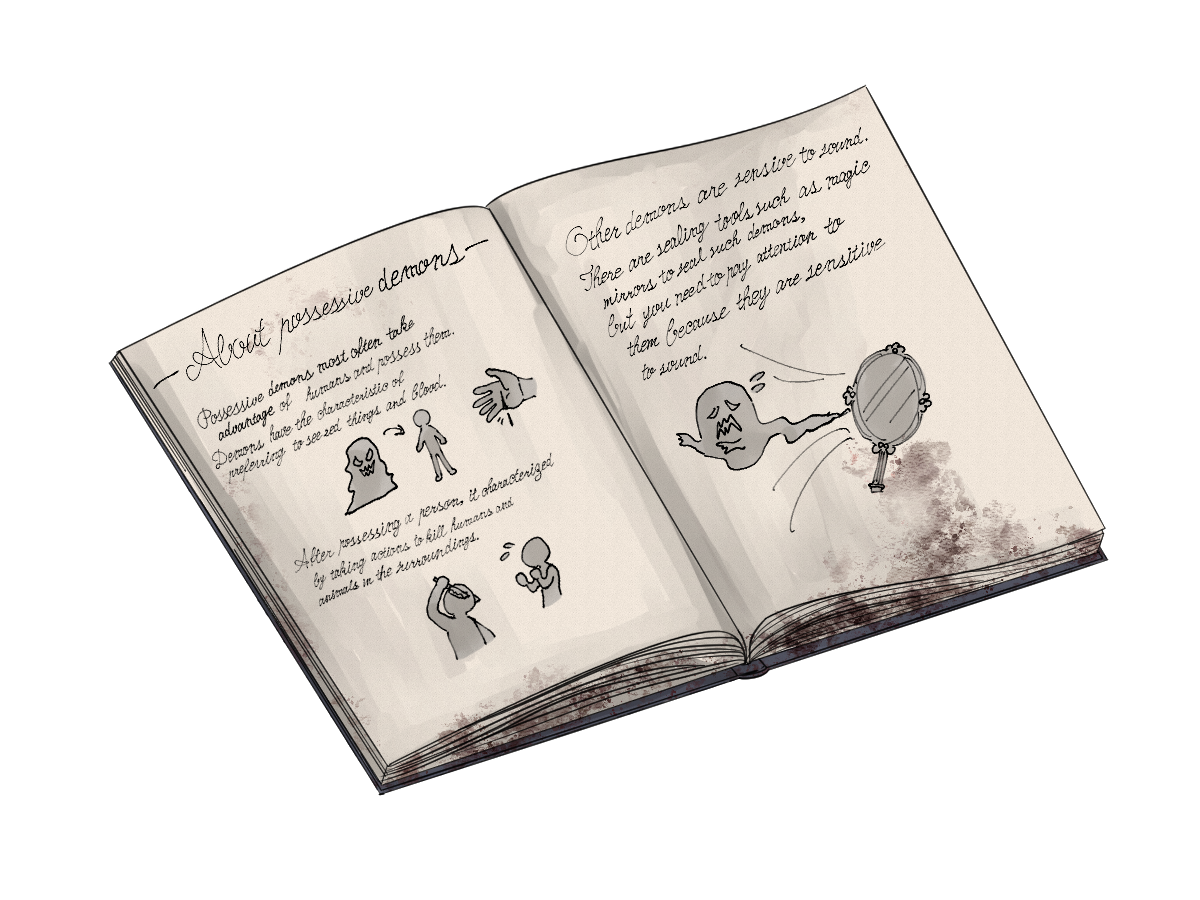 —About possessive demons—
Possessive demons most often take
advantage of humans and possess them.
Demons have the characteristic of
preferring to see zed things and blood.
After possessing a person, it characterized
by taking actions to kill humans and
animals in the surroundings.
Other demons are sensive to sound.
There are sealing tools such as magic
mirrors to seal such demons,
but you need to pay attention to
them because they are sensitive
to sound.